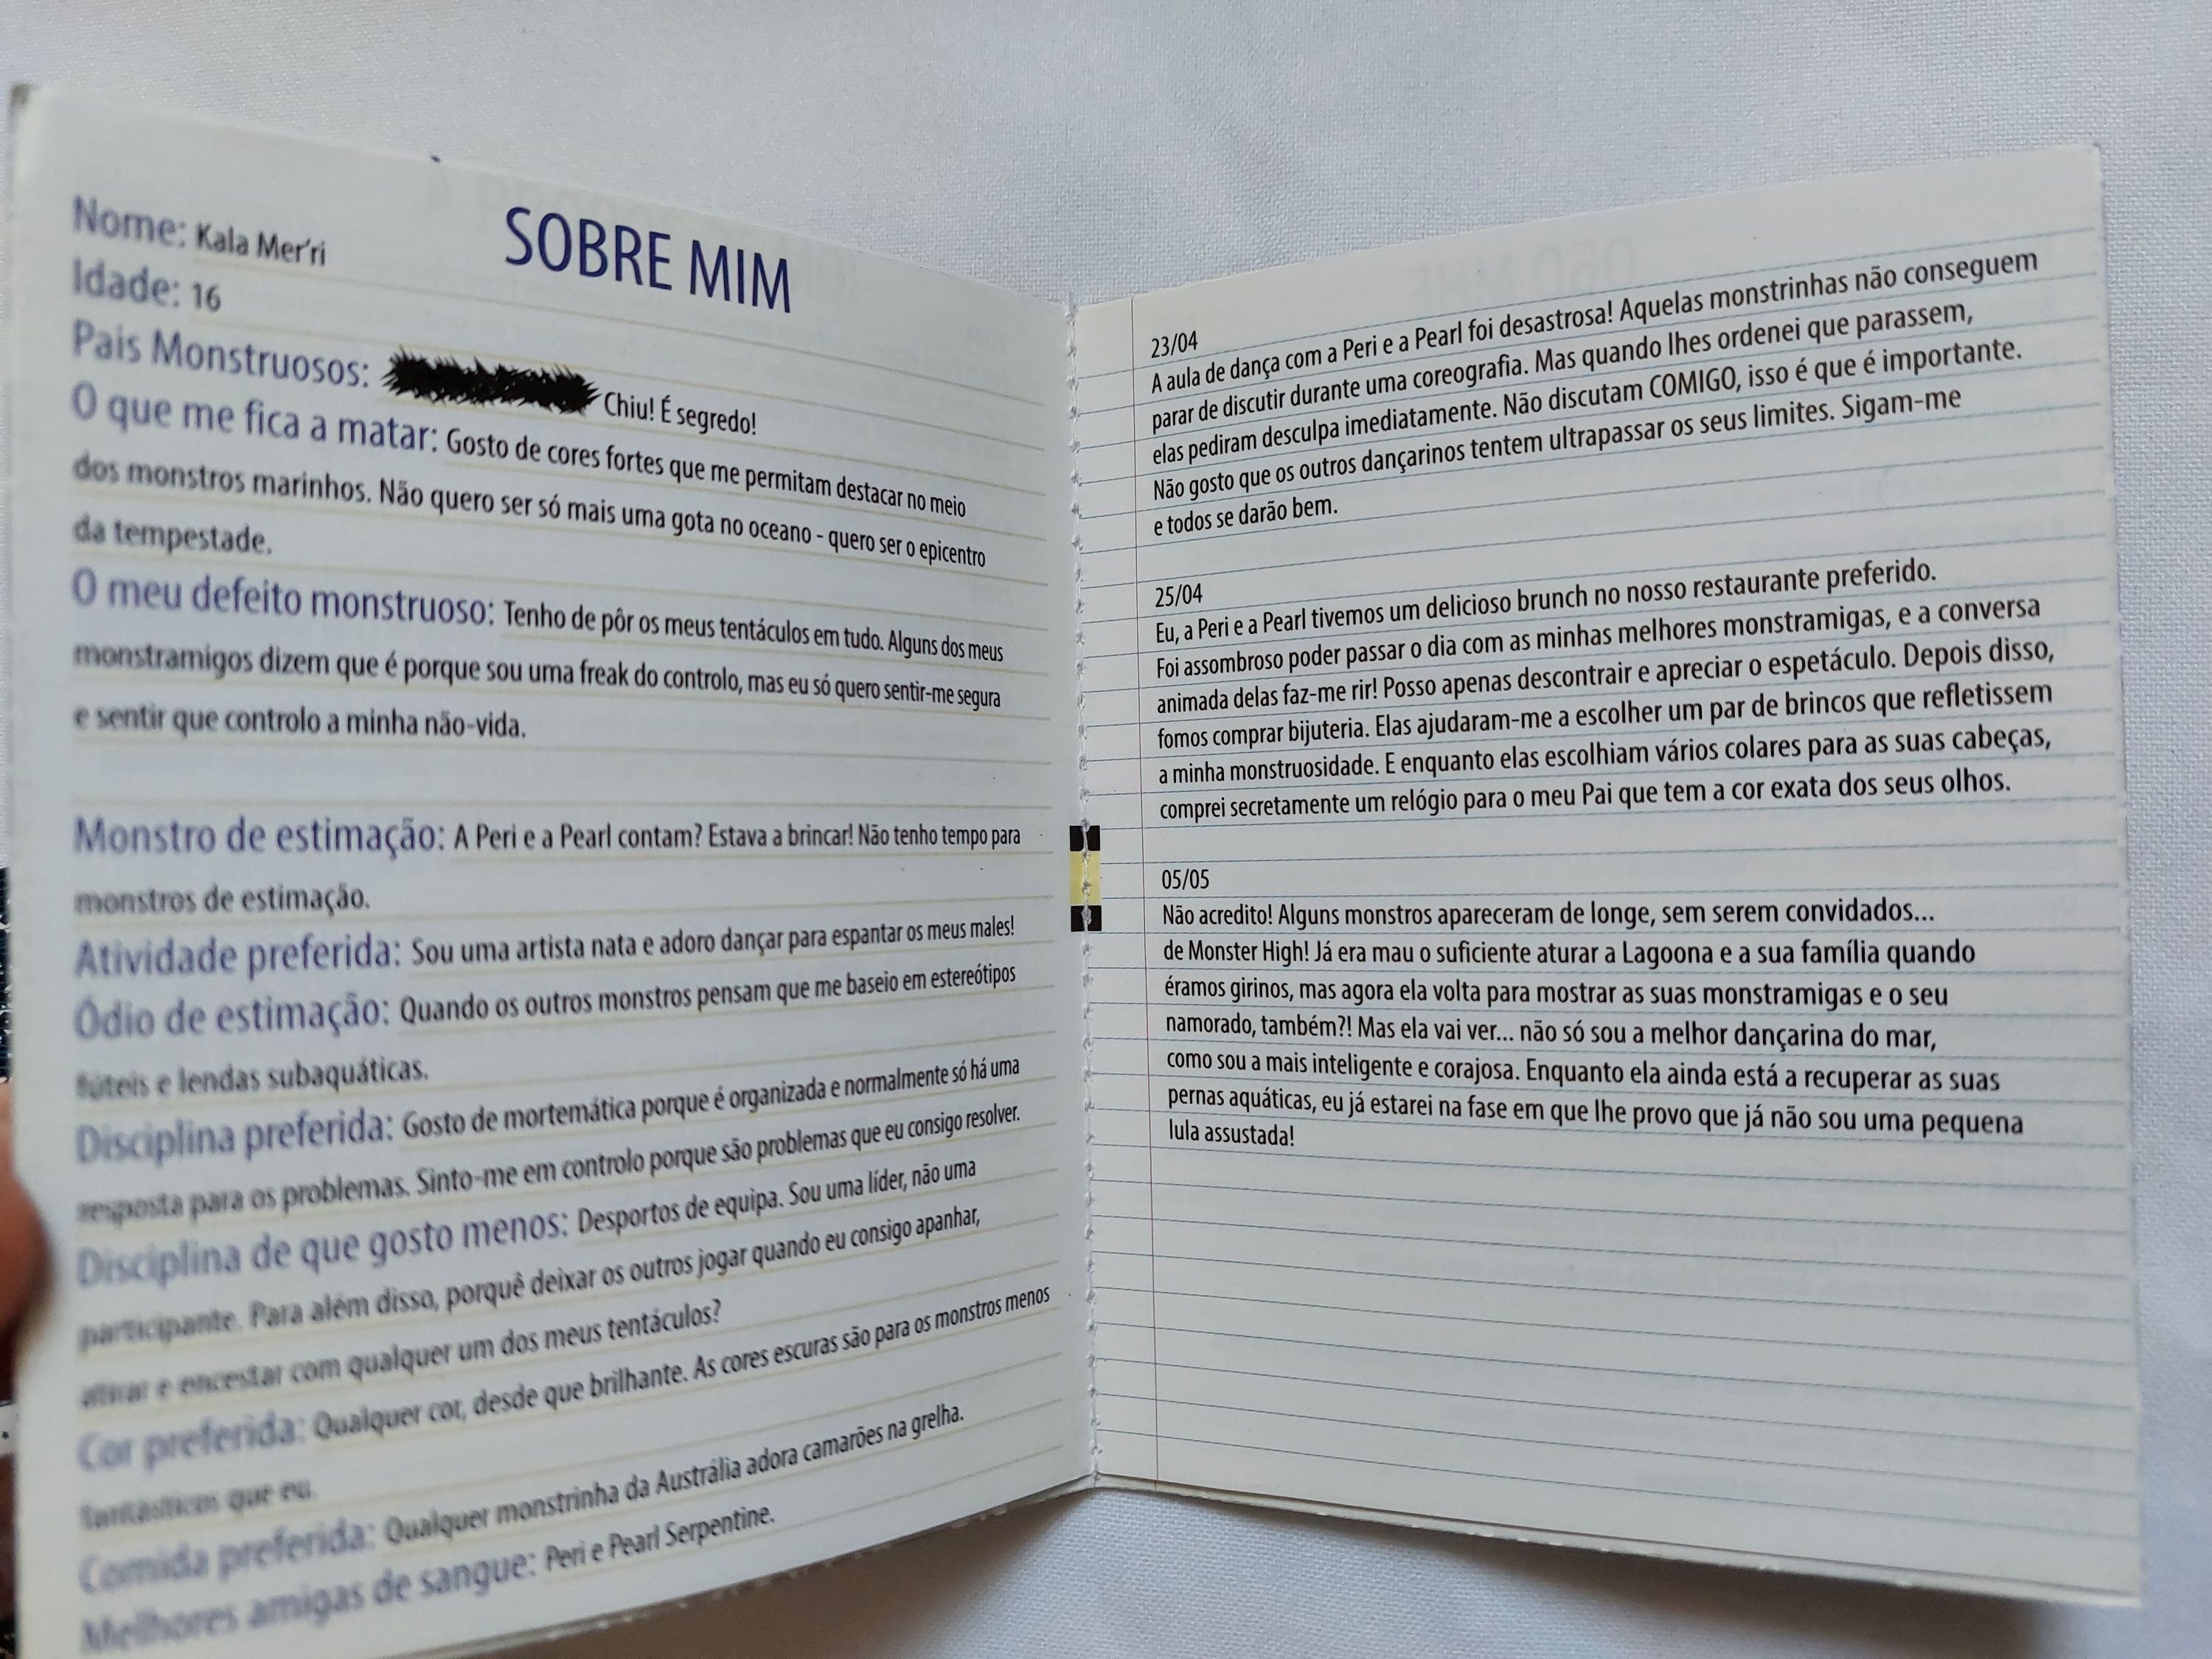 SOBRE MIM
Nome: Kala Mer'ri
Idade: 16
Pais Monstruosos: Chiu! É segredo!
O que me fica a matar: Gosto de cores fortes que me permitam destacar no meio
dos monstros marinhos. Não quero ser só mais uma gota no oceano - quero ser o epicentro
da tempestade.
O meu defeito monstruoso: Tenho de pôr os meus tentáculos em tudo. Alguns dos meus
monstramigos dizem que é porque sou uma freak do controlo, mas eu só quero sentir-me segura
e sentir que controlo a minha não-vida.
Monstro de estimação: A Peri e a Pearl contam? Estava a brincar! Não tenho tempo para
monstros de estimação.
Atividade preferida: Sou uma artista nata e adoro dançar para espantar os meus males!
Ódio de estimação: Quando os outros monstros pensam que me baseio em estereótipos
fúteis e lendas subaquáticas.
Disciplina preferida: Gosto de mortemática porque é organizada e normalmente só há uma
resposta para os problemas. Sinto-me em controlo porque são problemas que eu consigo resolver.
Disciplina de que gosto menos: Desportos de equipa. Sou uma líder, não uma
participante. Para além disso, porquê deixar os outros jogar quando eu consigo apanhar,
atirar e encestar com qualquer um dos meus tentáculos?
Cor preferida: Qualquer cor, desde que brilhante. As cores escuras são para os monstros menos
fantásticos que eu.
Comida preferida: Qualquer monstrinha da Austrália adora camarões na grelha.
Melhores amigas de sangue: Peri e Pearl Serpentine.
23/04
A aula de dança com a Peri e a Pearl foi desastrosa! Aquelas monstrinhas não conseguem
parar de discutir durante uma coreografia. Mas quando lhes ordenei que parassem,
elas pediram desculpa imediatamente. Não discutam COMIGO, isso é que é importante.
Não gosto que os outros dançarinos tentem ultrapassar os seus limites. Sigam-me
e todos se darão bem.
25/04
Eu, a Peri e a Pearl tivemos um delicioso brunch no nosso restaurante preferido.
Foi assombroso poder passar o dia com as minhas melhores monstramigas, e a conversa
animada delas faz-me rir! Posso apenas descontrair e apreciar o espetáculo. Depois disso,
fomos comprar bijuteria. Elas ajudaram-me a escolher um par de brincos que refletissem
a minha monstruosidade. E enquanto elas escolhiam vários colares para as suas cabeças,
comprei secretamente um relógio para o meu Pai que tem a cor exata dos seus olhos.
05/05
Não acredito! Alguns monstros apareceram de longe, sem serem convidados...
de Monster High! Já era mau o suficiente aturar a Lagoona e a sua família quando
éramos girinos, mas agora ela volta para mostrar as suas monstramigas e o seu
namorado, também?! Mas ela vai ver... não só sou a melhor dançarina do mar,
como sou a mais inteligente e corajosa. Enquanto ela ainda está a recuperar as suas
pernas aquáticas, eu já estarei na fase em que lhe provo que já não sou uma pequena
lula assustada!